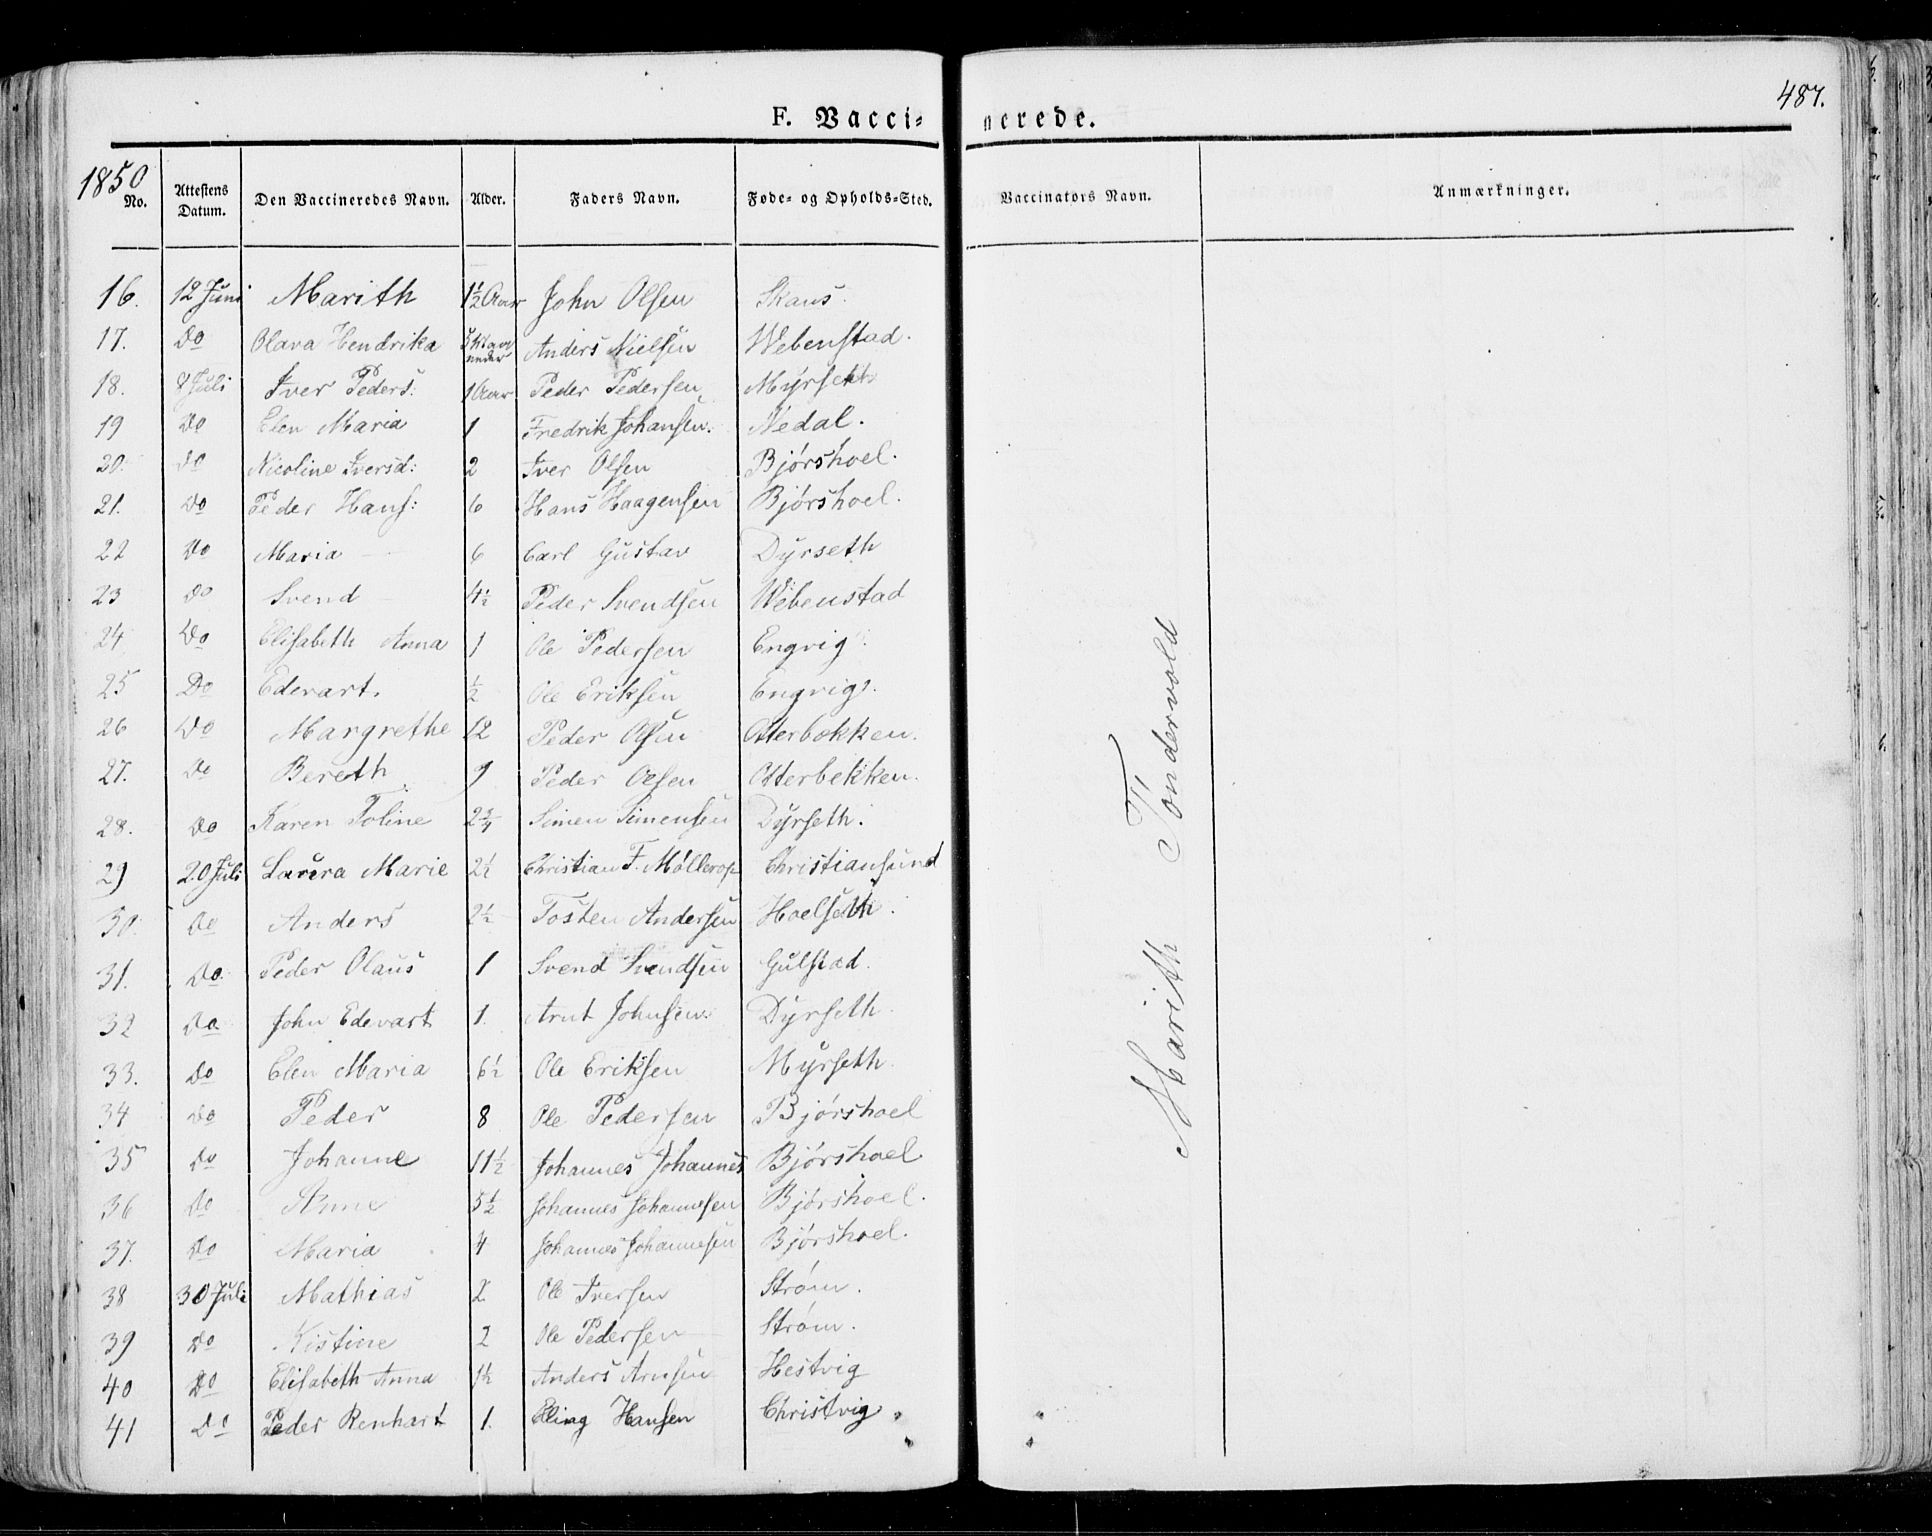 487.
F. Vacci- nerede.
1850
No. Attestens Datum. Den Vaccineredes Navn. Alder. Faders Navn. Føde- og Opholds-Sted. Vaccinators Navn. Anmærkninger.
16. 12 Juni Marith 1½ Aar John Olsen Skans.
17. Do Olava Hendrika Anders Nielsen Webenstad.
18. 8 Juli Iver Peders: 1 Aar Peder Pedersen Myrseth
19 Do Elen Maria 1 Fredrik Johansen. Nedal.
20. Do Nicoline Iversd: 2 Iver Olsen Bjørshoel.
21. Do Peder Hans: 6 Hans Haagensen Bjørshoel.
22 Do Maria 6 Carl Gustav Dyrseth
23 Do Svend 4½ Peder Svendsen Webenstad
24 Do Elisabeth Anna 1 Ole Pedersen Engvig
25 Do Edevart. ½ Ole Eriksen Engvig.
26 Do Margrethe 12 Peder Olsen Otterbekken.
27. Do Bereth 9 Peder Olsen Otterbekken.
28. Do Karen Toline 2¾ Simen Simensen Dyrseth.
29 20 Juli Laura Marie 2½ Christian F. Møllerop Christiansund
30. Do Anders 2½ Tosten Andersen Hoelseth.
31. Do. Peder Olaus 1 Svend Svendsen Gulstad.
32 Do John Edevart 1. Arnt Johnsen Dyrseth.
33. Do Elen Maria 6½ Ole Eriksen Myrseth.
34 Do Peder 8 Ole Pedersen Bjørshoel
35 Do Johanne 11½ Johannes Johannes Bjørshoel.
36 Do Anne 5½ Johannes Johannesen Bjørshoel.
37. Do Maria 4 Johannes Johannesen Bjørshoel.
38 30 Juli Mathias 2 Ole Iversen Strøm.
39 Do Kistine 2 Ole Pedersen Strøm.
40 Do Elisabeth Anna 1½ Anders Arnsen Hestvig
41 Do Peder Renhart 1. Elling Hansen Christvig.
Marith Tøndervold